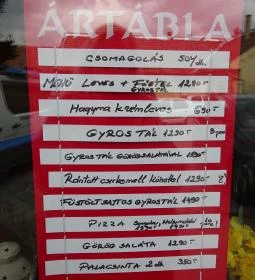 ÁRTÁBLA
CSOMAGOLÁS 50/db.
MENÜ LEVES + FŐÉTEL 1290-
GYROSTÁL
Hagyma krémleves 690-
GYROS TÁL 1290-
GYROSTÁL GÖRÖGSALÁTÁVAL
Rántott csirkemell körettel 1290-
FÜSTÖLTSAJTOS GYROSTÁL 1490-
PIZZA
GÖRÖG SALÁTA 1290-
PALACSINTA 2 db 350-